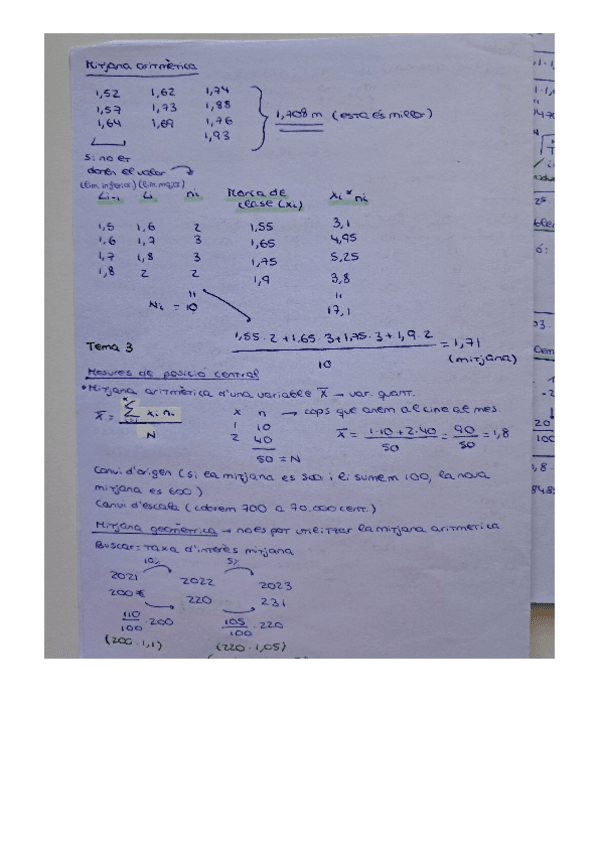 Mitjana aritmètica
1,52 1,62 1,74
1,57 1,73 1,88
1,64 1,69 1,76
1,93
1,708 m (esta és millor)
Si no et
donen el valor
(lim. inferior) (lim. major)
Li-1 Li ni Marca de clase (xi) xi * ni
1,5 1,6 2 1,55 3,1
1,6 1,7 3 1,65 4,95
1,7 1,8 3 1,75 5,25
1,8 2 2 1,9 3,8
Ni = 10 17,1
1,55 · 2 + 1,65 · 3 + 1,75 · 3 + 1,9 · 2 / 10 = 1,71
(mitjana)
Tema 3
Mesures de posició central
• Mitjana aritmètica d'una variable x̄ → var. quant.
x̄ = Σ xi ni / N
x n → cops que anem al cine al mes.
1 10
2 40
50 = N
x̄ = 1·10 + 2·40 / 50 = 90 / 50 = 1,8
Canvi d'origen (si la mitjana es 500 i li sumem 100, la nova
mitjana es 600)
Canvi d'escala ( 700 a 70.000 cent.)
Mitjana geomètrica → no es pot utilitzar la mitjana aritmètica
Buscar = taxa d'interès mitjana
10% 5%
2021 2022 2023
200€ 220 231
110/100 · 200 105/100 · 220
(200 · 1,1) (220 · 1,05)